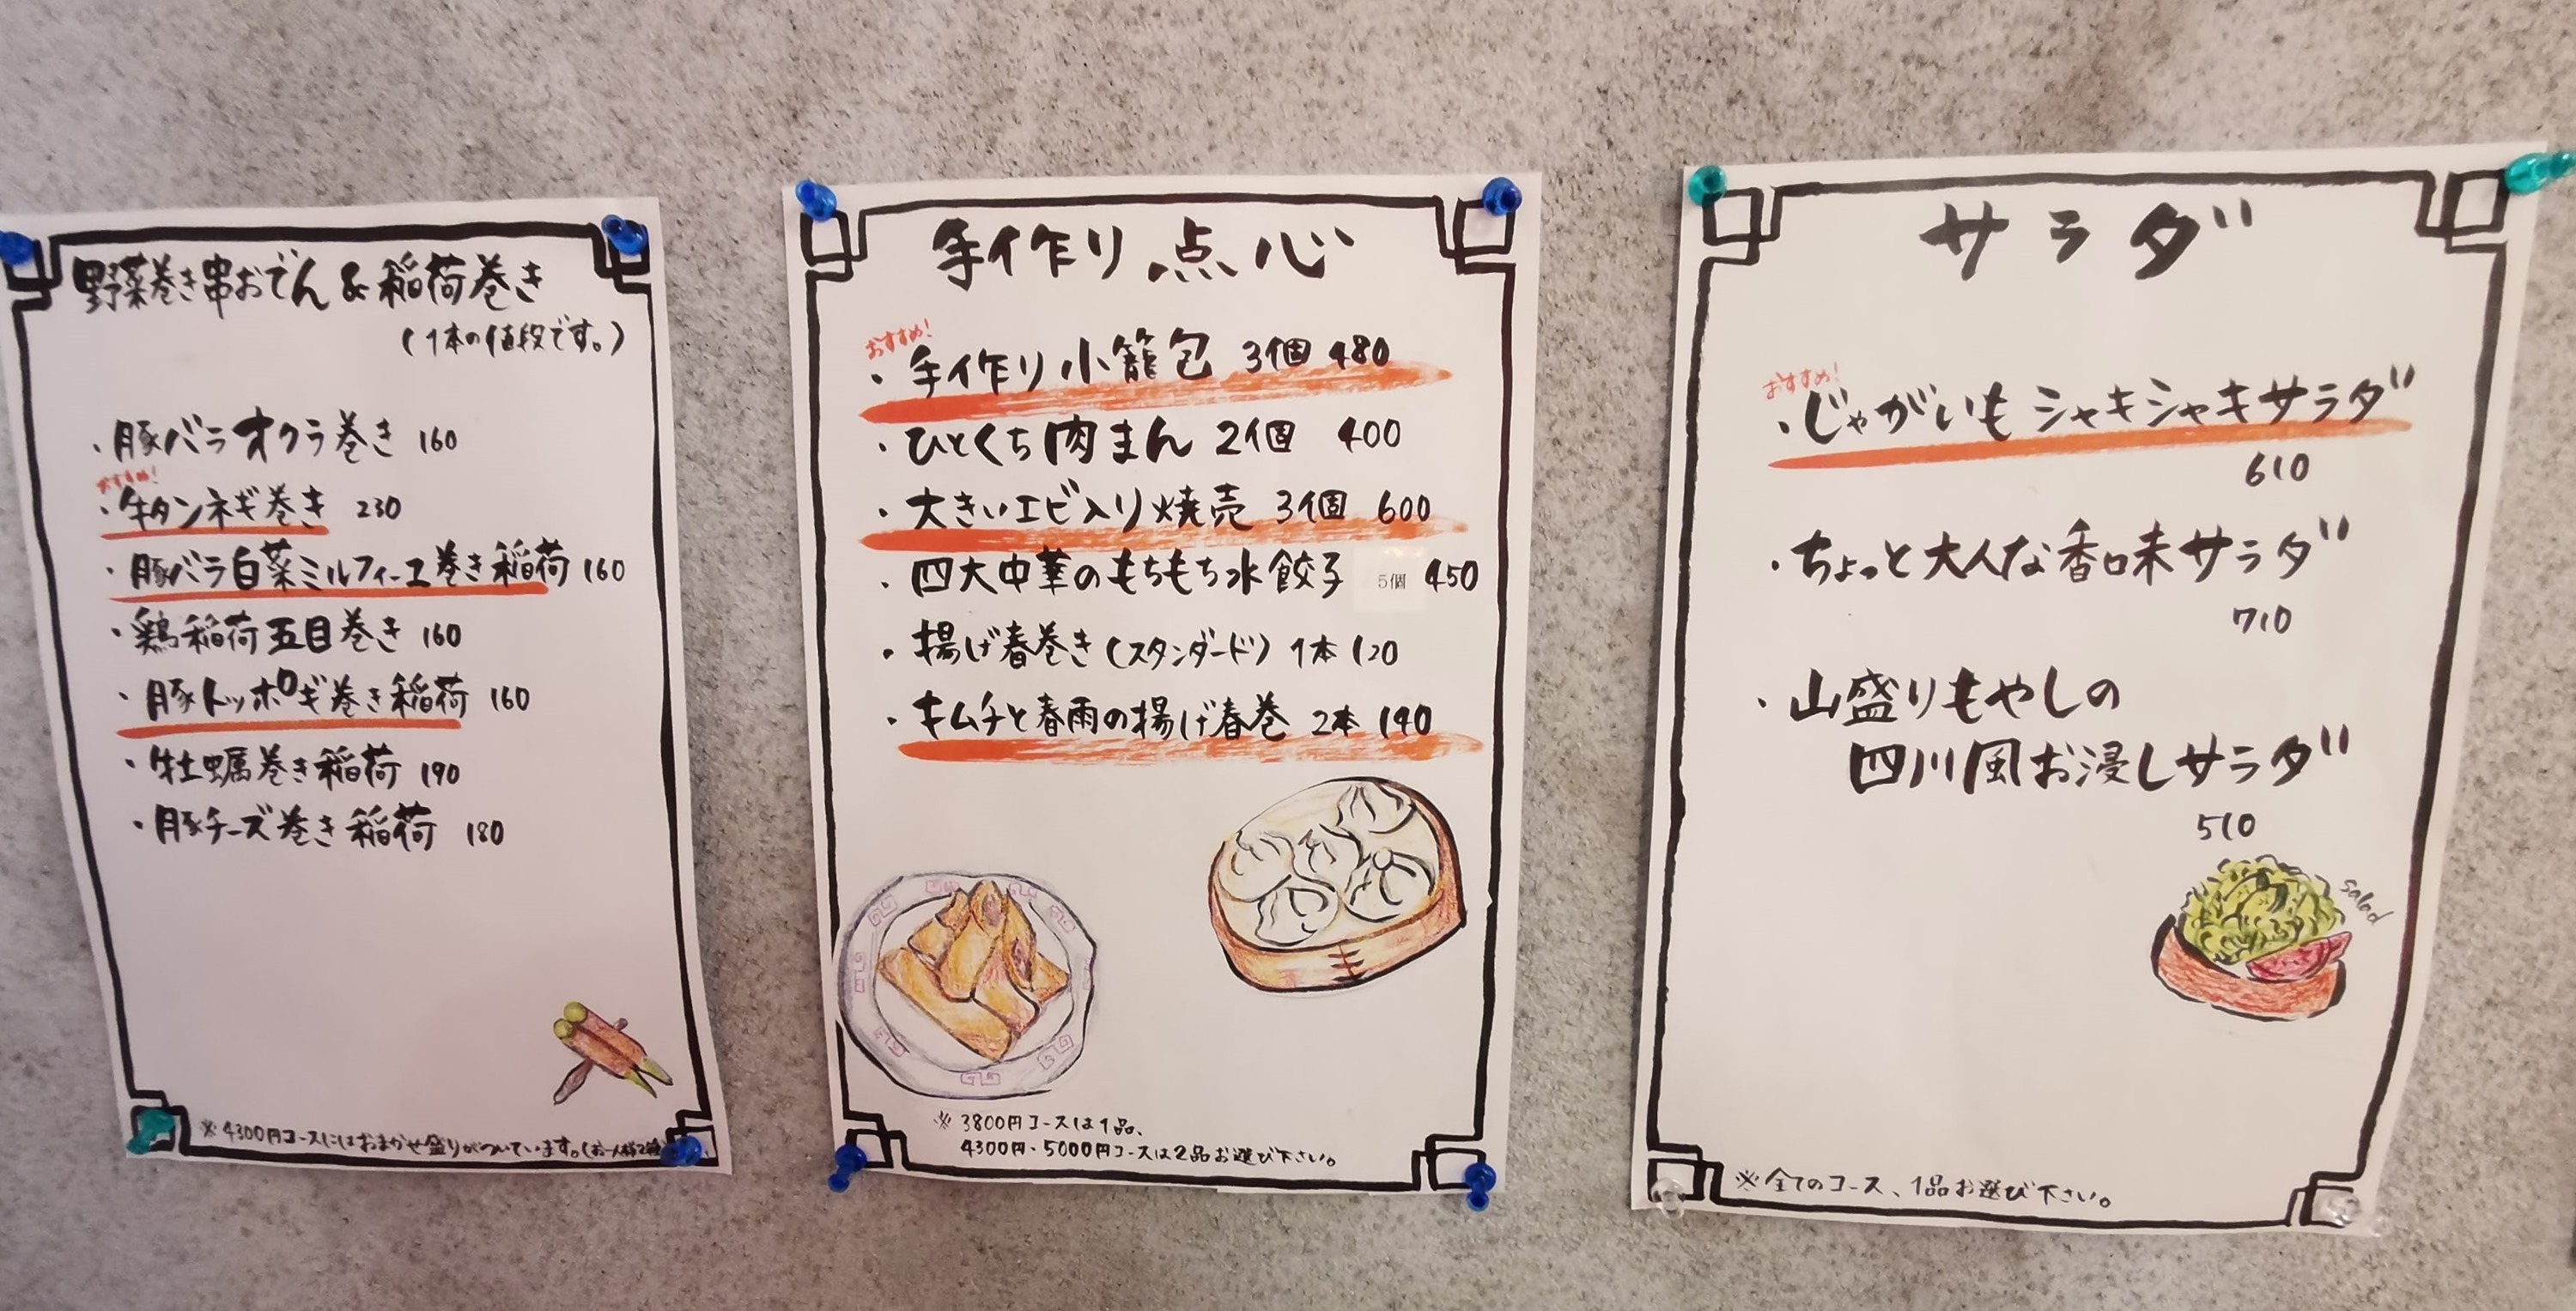 野菜巻き串おでん&稲荷巻き
(1本の値段です。)
・豚バラオクラ巻き 160
おすすめ!
・牛タンネギ巻き 230
・豚バラ白菜ミルフィーユ巻き稲荷 160
・鶏稲荷五目巻き 160
・豚トッポギ巻き稲荷 160
・牡蠣巻き稲荷 190
・豚チーズ巻き稲荷 180
※4300円コースにはおまかせ盛りがついています。(お一人様2種
手作り点心
おすすめ!
・手作り小籠包 3個 480
・ひとくち肉まん 2個 400
・大きいエビ入り焼売 3個 600
・四大中華のもちもち水餃子 5個 450
・揚げ春巻き(スタンダード) 1本 120
・キムチと春雨の揚げ春巻 2本 190
※3800円コースは1品、
4300円・5000円コースは2品お選び下さい。
サラダ
おすすめ!
・じゃがいもシャキシャキサラダ
610
・ちょっと大人な香味サラダ
710
・山盛りもやしの
四川風お浸しサラダ
510
salad
※全てのコース、1品お選び下さい。